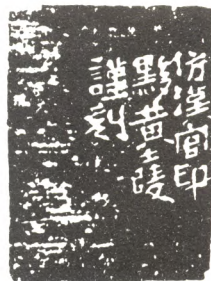 仿漢官印
黟黃士陵
謹刻